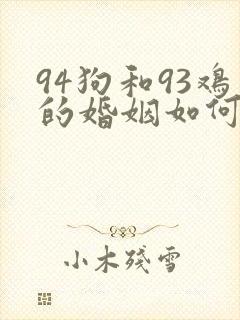 94狗和93鸡
的婚姻如何
小木残雪